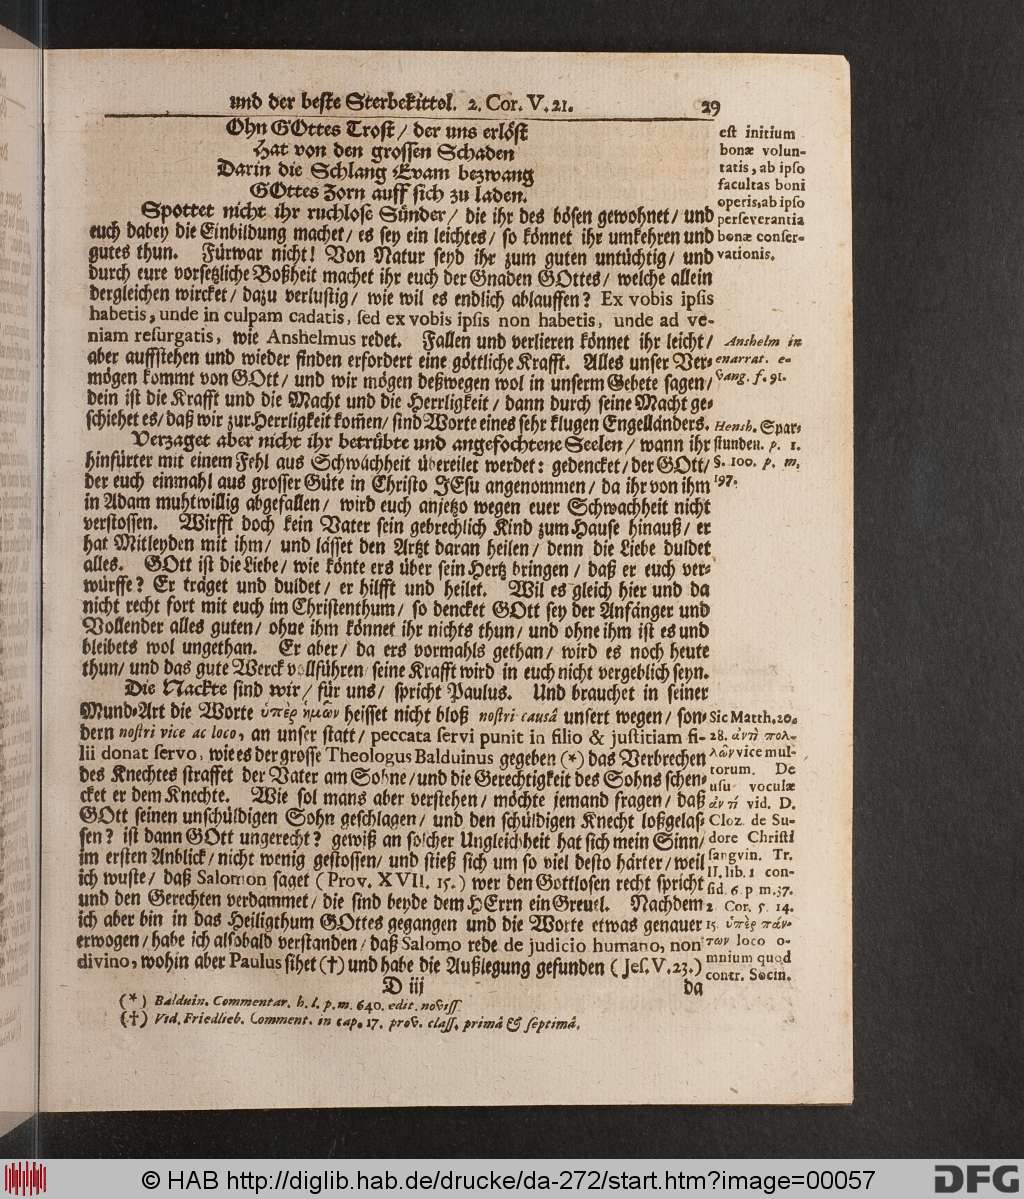 und der beste Sterbekittel. 2. Cor. V. 21. 29
Ohn GOttes Trost / der uns erlöst
Hat von den grossen Schaden
Darin die Schlang Evam bezwang
GOttes Zorn auff sich zu laden.
Spottet nicht ihr ruchlose Sünder / die ihr des bösen gewohnet / und
euch dabey die Einbildung machet / es sey ein leichtes / so könnet ihr umkehren und
gutes thun. Fürwar nicht! Von Natur seyd ihr zum guten untüchtig / und
durch eure vorsetzliche Boßheit machet ihr euch der Gnaden GOttes / welche allein
dergleichen wircket / dazu verlustig / wie wil es endlich ablauffen? Ex vobis ipsis
habetis, unde in culpam cadatis, sed ex vobis ipsis non habetis, unde ad ve-
niam resurgatis, wie Anshelmus redet. Fallen und verlieren könnet ihr leicht /
aber auffstehen und wieder finden erfordert eine göttliche Krafft. Alles unser Ver-
mögen kommt von GOtt / und wir mögen deßwegen wol in unserm Gebete sagen /
dein ist die Krafft und die Macht und die Herrligkeit / dann durch seine Macht ge-
schiehet es / daß wir zur Herrligkeit kom̃en / sind Worte eines sehr klugen Engelländers.
Verzaget aber nicht ihr betrübte und angefochtene Seelen / wann ihr
hinfürter mit einem Fehl aus Schwachheit übereilet werdet: gedencket / der GOtt /
der euch einmahl aus grosser Güte in Christo JEsu angenommen / da ihr von ihm
in Adam muhtwillig abgefallen / wird euch anjetzo wegen euer Schwachheit nicht
verstossen. Wirfft doch kein Vater sein gebrechlich Kind zum Hause hinauß / er
hat Mitleyden mit ihm / und lässet den Artzt daran heilen / denn die Liebe duldet
alles. GOtt ist die Liebe / wie könte ers über sein Hertz bringen / daß er euch ver-
würffe? Er träget und duldet / er hilfft und heilet. Wil es gleich hier und da
nicht recht fort mit euch im Christenthum / so dencket GOtt sey der Anfänger und
Vollender alles guten / ohne ihm könnet ihr nichts thun / und ohne ihm ist es und
bleibets wol ungethan. Er aber / da ers vormahls gethan / wird es noch heute
thun / und das gute Werck vollführen seine Krafft wird in euch nicht vergeblich seyn.
Die Nackte sind wir / für uns / spricht Paulus. Und brauchet in seiner
Mund-Art die Worte ὑπὲρ ἡμῶν heisset nicht bloß nostri causâ unsert wegen / son-
dern nostri vice ac loco, an unser statt / peccata servi punit in filio & justitiam fi-
lii donat servo, wie es der grosse Theologus Balduinus gegeben (*) das Verbrechen
des Knechtes straffet der Vater am Sohne / und die Gerechtigkeit des Sohns schen-
cket er dem Knechte. Wie sol mans aber verstehen / möchte jemand fragen / daß
GOtt seinen unschüldigen Sohn geschlagen / und den schüldigen Knecht loßgelas-
sen? ist dann GOtt ungerecht? gewiß an solcher Ungleichheit hat sich mein Sinn /
im ersten Anblick / nicht wenig gestossen / und stieß sich um so viel desto härter / weil
ich wuste / daß Salomon saget (Prov. XVII. 15.) wer den Gottlosen recht spricht
und den Gerechten verdammet / die sind beyde dem HErrn ein Greuel. Nachdem
ich aber bin in das Heiligthum GOttes gegangen und die Worte etwas genauer
erwogen / habe ich alsobald verstanden / daß Salomo rede de judicio humano, non
divino, wohin aber Paulus sihet (†) und habe die Außlegung gefunden (Jes. V. 23.)
D iij da
(*) Balduin. Commentar. h. l. p. m. 640. edit. noviss.
(†) Vid. Friedlieb. Comment. in cap. 17. prov. class. primâ & septimâ.
est initium
bonæ volun-
tatis, ab ipso
facultas boni
operis, ab ipso
perseverantia
bonæ conser-
vationis.
Anshelm in
enarrat. e-
vang. f. 91.
Hensh. Spar-
stunden. p. 1.
§. 100. p. m.
197.
Sic Matth. 20.
28. ἀντὶ πολ-
λῶν vice mul-
torum. De
usu voculæ
ἀντί vid. D.
Cloz. de Su-
dore Christi
sangvin. Tr.
II. lib. 1 con-
sid. 6. p m. 37.
2 Cor. 5. 14.
15. ὑπὲρ πάν-
των loco o-
mnium quod
contr. Socin.
© HAB http://diglib.hab.de/drucke/da-272/start.htm?image=00057
DFG